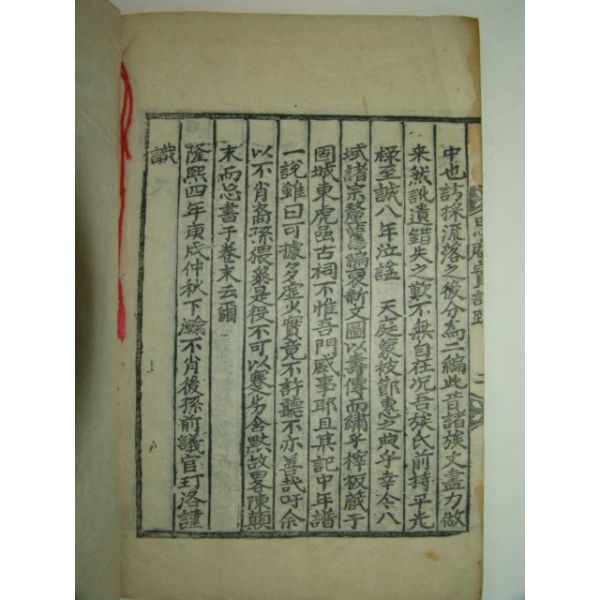 中也訪採流落之後分為二編此昔諸族丈盡力做
来然訛遺錯失之歎不無自在况吾族氏前持平光
祿至誠八年泣謚 天庭蒙校節惠之典乎幸今八
域諸宗釐舊編裒新文圖以壽傳而繡乎梓板藏于
固城東虎邑古祠不惟吾門盛事耶且其記中年譜
一說雖曰可據多虛少實竟不許聽不亦善哉吁余
以不肖裔孫猥叅是役不可以蹇劣含默故畧陳顛
末而忘書于卷末云爾
隆熙四年庚戌仲秋下澣不肖後孫前議官玎洛謹
識
思庵實記跋 二